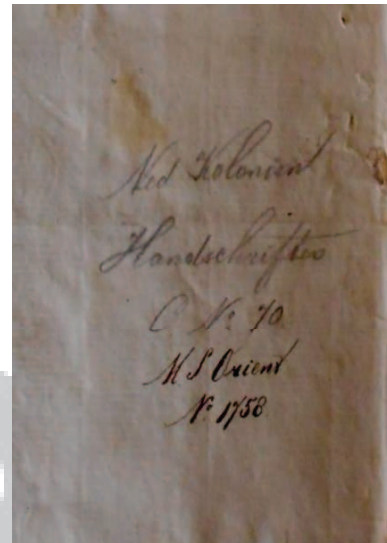 Ned Kolonien
Handschriften
C No 70
MS Orient
No 1758